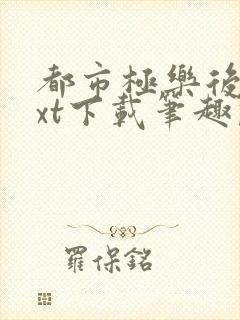 都市極樂後
xt下載筆趣
羅保銘